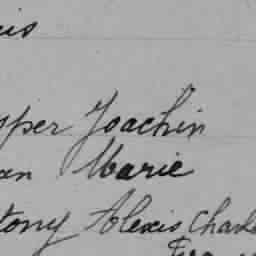 is
sper Joachin
an Marie
tony Alexis Charl